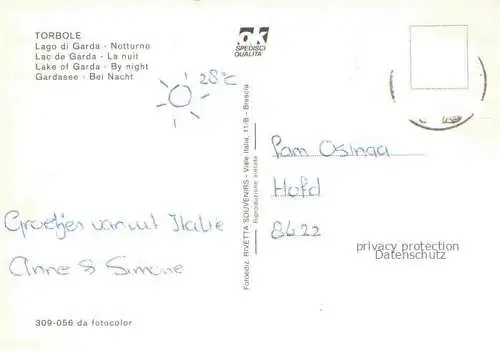 TORBOLE
Lago di Garda - Notturno
Lac de Garda - La nuit
Lake of Garda - By night
Gardasee - Bei Nacht
ok
SPEDISCI
QUALITA'
28°C
Groetjes vanuit Italie
Anne & Simone
309-056 da fotocolor
Fotoediz. RIVETTA SOUVENIRS - Viale Italia, 11/B - Brescia
Riproduzione vietata
Fam Osinga
Hofd
8622
privacy protection
Datenschutz